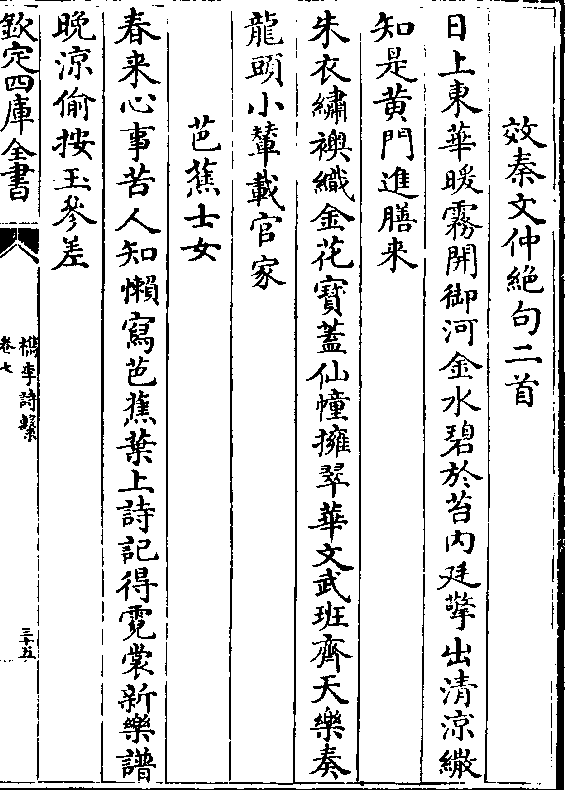 效秦文仲絶句二首
日上東華暖霧開御河金水碧於苔内廷擎出清涼繖
知是黄門進膳来
朱衣繡襖織金花寳蓋仙幢擁翠華文武班齊天樂奏
龍頭小輦載官家
芭蕉士女
春来心事苦人知懶寫芭蕉葉上詩記得霓裳新樂譜
晩涼偷按玉參差
欽定四庫全書
檇李詩繫
卷七
三十五